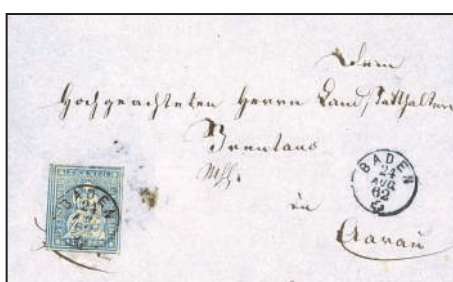 Dem
Hochgeachteten Herrn Landstatthalter
Brentano
in
Aarau
BADEN
24
AUG
62
BADEN
24
AUG
62